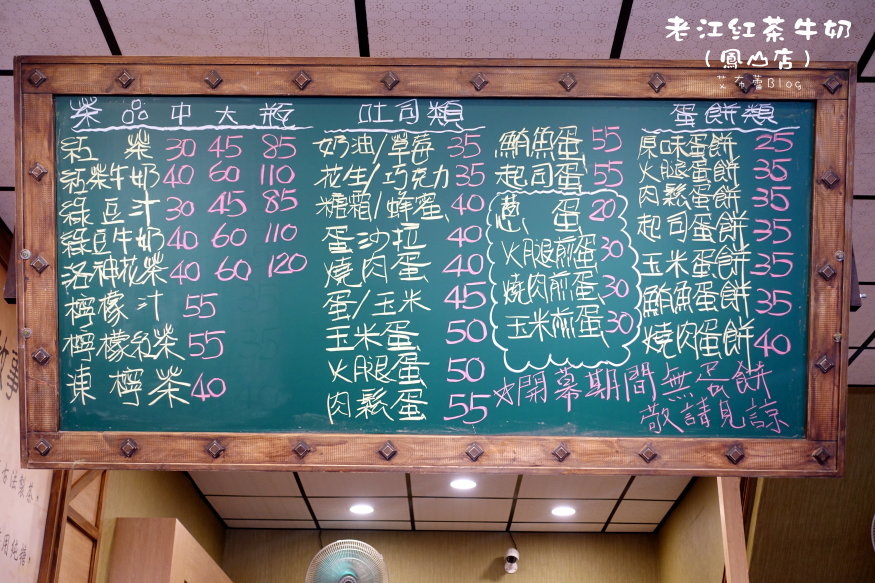 老江紅茶牛奶
(鳳山店)
艾布蕾Blog
茶品 中 大 瓶
紅 茶 30 45 85
紅茶牛奶 40 60 110
綠豆汁 30 45 85
綠豆牛奶 40 60 110
洛神花茶 40 60 120
檸檬汁 55
檸檬紅茶 55
東檸茶 40
吐司類
奶油/草莓 35
花生/巧克力 35
糖霜/蜂蜜 40
蛋沙拉 40
燒肉蛋 40
蛋/玉米 45
玉米蛋 50
火腿蛋 50
肉鬆蛋 55
鮪魚蛋 55
起司蛋 55
蔥 蛋 20
火腿煎蛋 30
燒肉煎蛋 30
玉米煎蛋 30
蛋餅類
原味蛋餅 25
火腿蛋餅 35
肉鬆蛋餅 35
起司蛋餅 35
玉米蛋餅 35
鮪魚蛋餅 35
燒肉蛋餅 40
※開幕期間無蛋餅
敬請見諒
古法製茶。